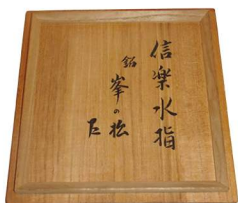 信楽水指
銘
峯の松